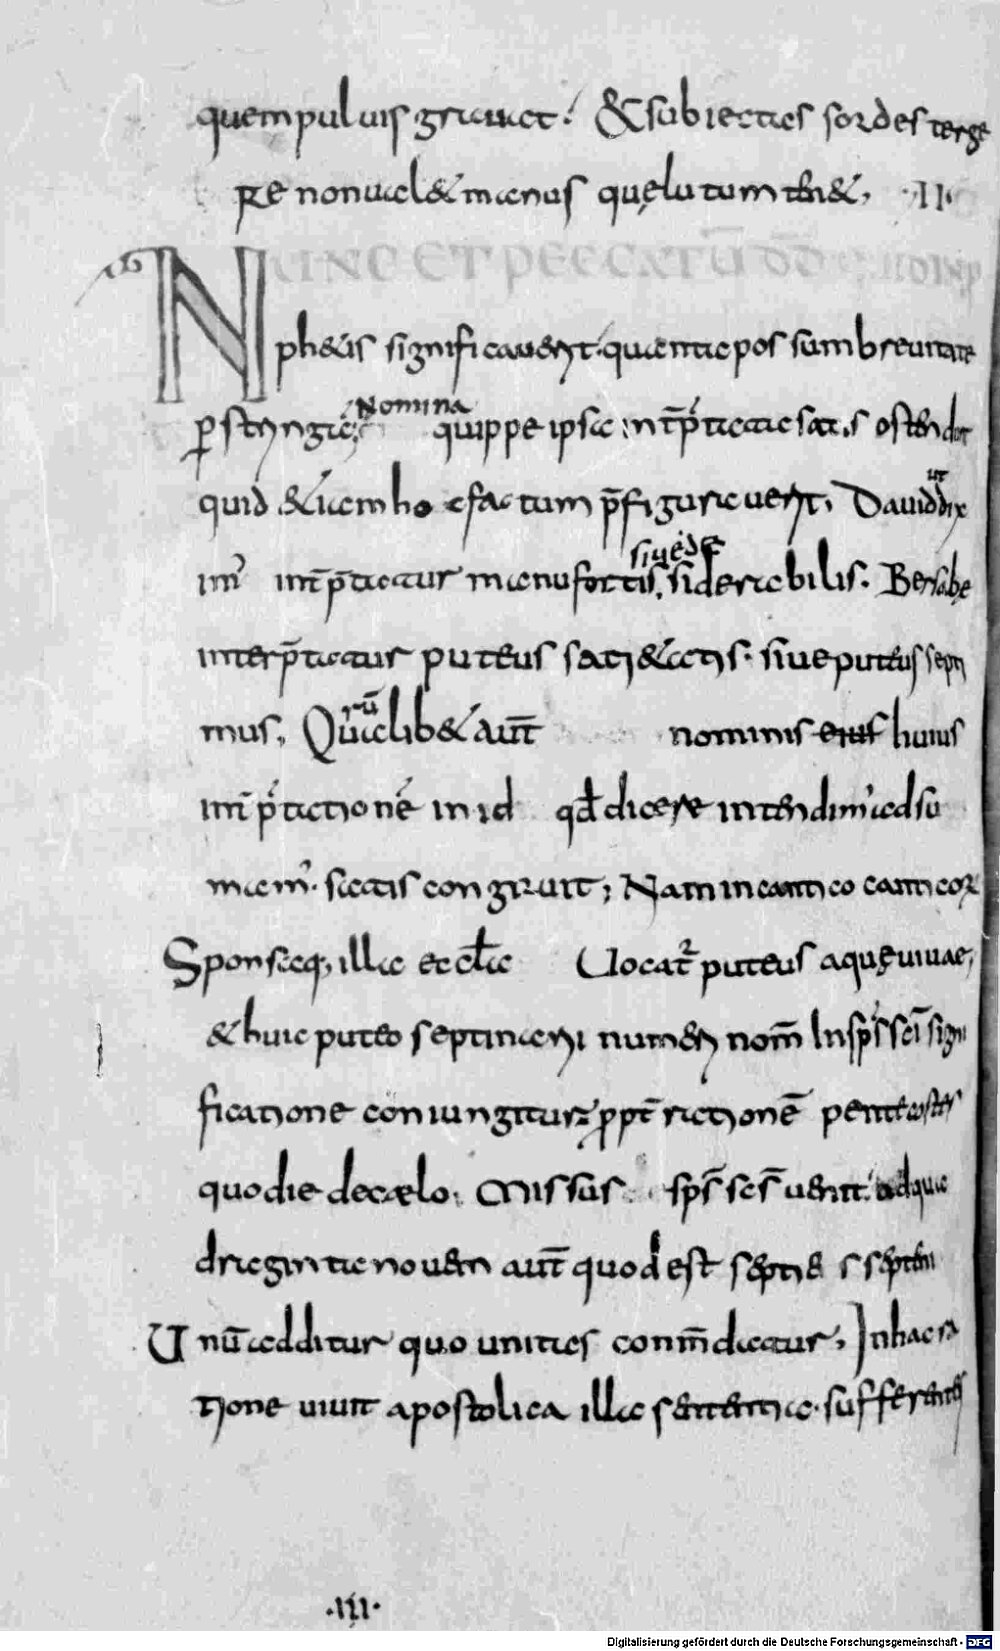 quem puluis grauat. & subiectas sordes terge
re non ual& manus quę lutum ten&, ·II·
NUNC ET PECCATŪ DD
pha&is significauerit. quanta possum breuitate
p̱stringā; Nomina quippe ipsa int̄p̄tata satis ostendūt
quid &iam hoc factum p̄figurauerit, Dauid ut dix
im' int̄p̄tatur manu fortis, siue desiderabilis. Bersabę
interp̄tatur puteus sati&atis. siue puteus septi
mus, Quālib& aut̄ nominis eius huius
int̄p'tationē in id qd̄ dicere intendim' adsu
mam'. satis congruit; Nam in cantico canticoꝝ
Sponsaq; illa ecc̄l̄a Uocat᷑ puteus aquę uiuae,
& huic puteo septinarii numeri nom̄ In sp̄s sc̄i signi
ficatione coniungitur ꝓpt̄ rationē pentecostes
quo die de cælo. Missus sp̄s sc̄s uenit. ad qua
draginta nouem aut̄ quod est septies septeni
Unū additur quo unitas com̄datur, In hac ra
tione uiuit apostolica illa sententia. sufferentes
·III·
Digitalisierung gefördert durch die Deutsche Forschungsgemeinschaft - DFG